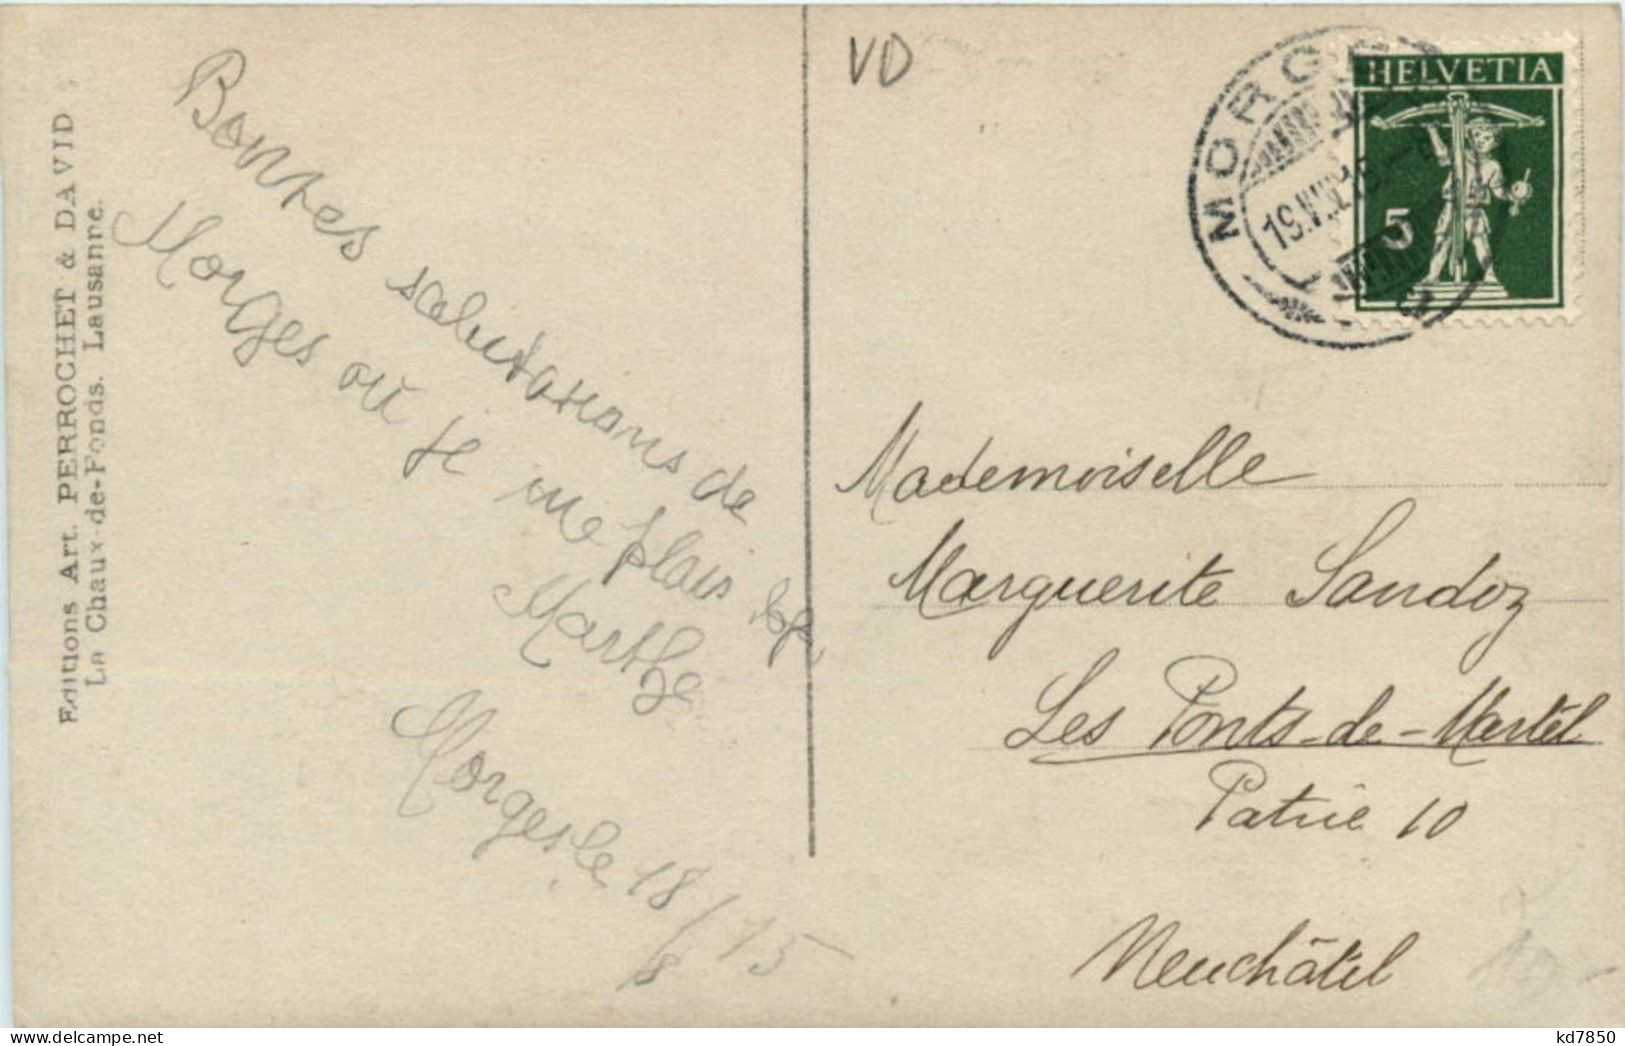 Editions Art. PERROCHET & DAVID
La Chaux-de-Fonds. Lausanne.
Bonnes salutations de
Morges où je me plais
Marthe
Morges le 18/8 15
VD
HELVETIA
5
MORGES
19.VIII.15
Mademoiselle
Marguerite Sandoz
Les Ponts-de-Martel
Patrie 10
Neuchâtel
kd7850